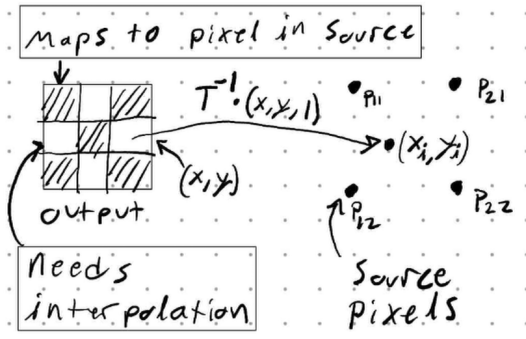 Maps to pixel in source
T⁻¹·(x,y,1)
P11
P21
(xi,yi)
(x,y)
output
P12
P22
Needs
interpolation
Source
pixels